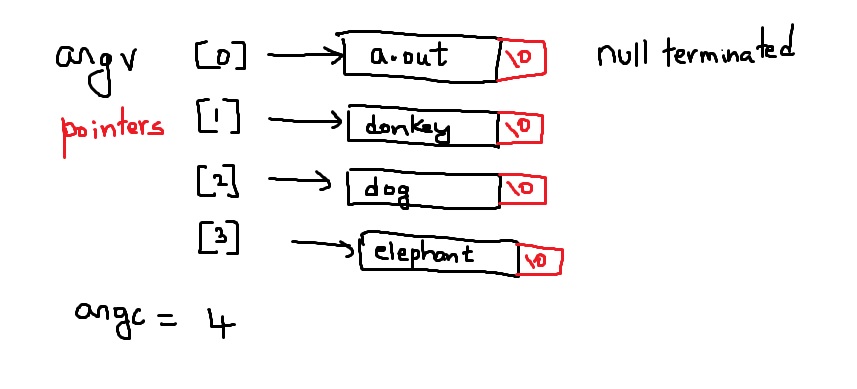 argv [0] a.out \0 null terminated
pointers [1] donkey \0
[2] dog \0
[3] elephant \0
argc = 4